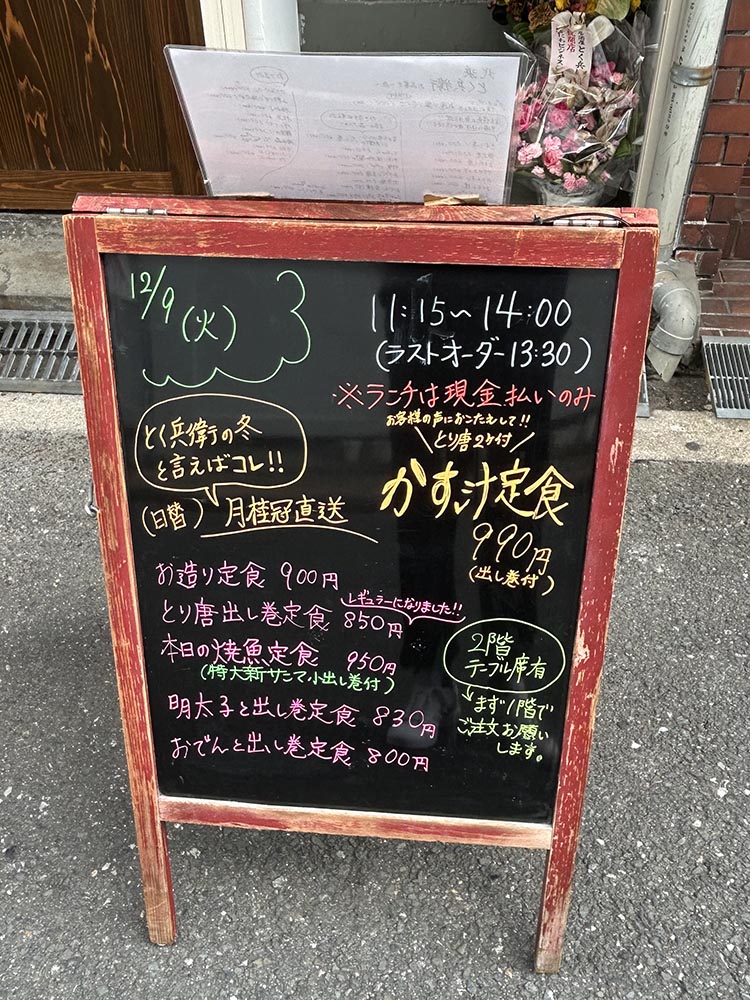 12/9(火)
11:15〜14:00
(ラストオーダー13:30)
※ランチは現金払いのみ
お客様の声におこたえして!!
\とり唐2ケ付/
とく兵衛の冬
と言えばコレ!!
(日替)月桂冠直送
かす汁定食
990円
(出し巻付)
お造り定食 900円
レギュラーになりました!!
とり唐出し巻定食 850円
本日の焼魚定食 950円
(特大新サンマ小出し巻付)
明太子と出し巻定食 830円
おでんと出し巻定食 800円
2階
テーブル席有
まず1階で
ご注文お願い
します。